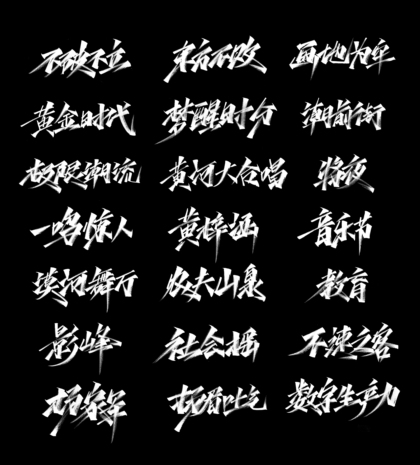 不破不立 东方不败 画地为牢
黄金时代 梦醒时分 潮前街
极限潮流 黄河大合唱 将夜
一哆惊人 黄梓涵 音乐节
漠河舞厅 大山泉 教育
影峰 社会摇 不辣之客
杨家 扬眉吐气 数字生产力